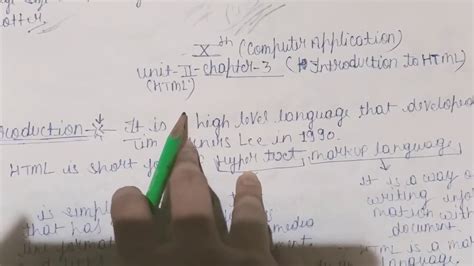 otter.
Xth (Computer Application)
Unit-II-chapter-3 (Introduction to HTML)
(HTML)
roduction- It is high level language that develope
Tim ners Lee in 1990.
HTML is short fo Hyper text, markup language
it is a way o
is simpl writing info
that has mation with
media document.
are format HTML is a ma
language.